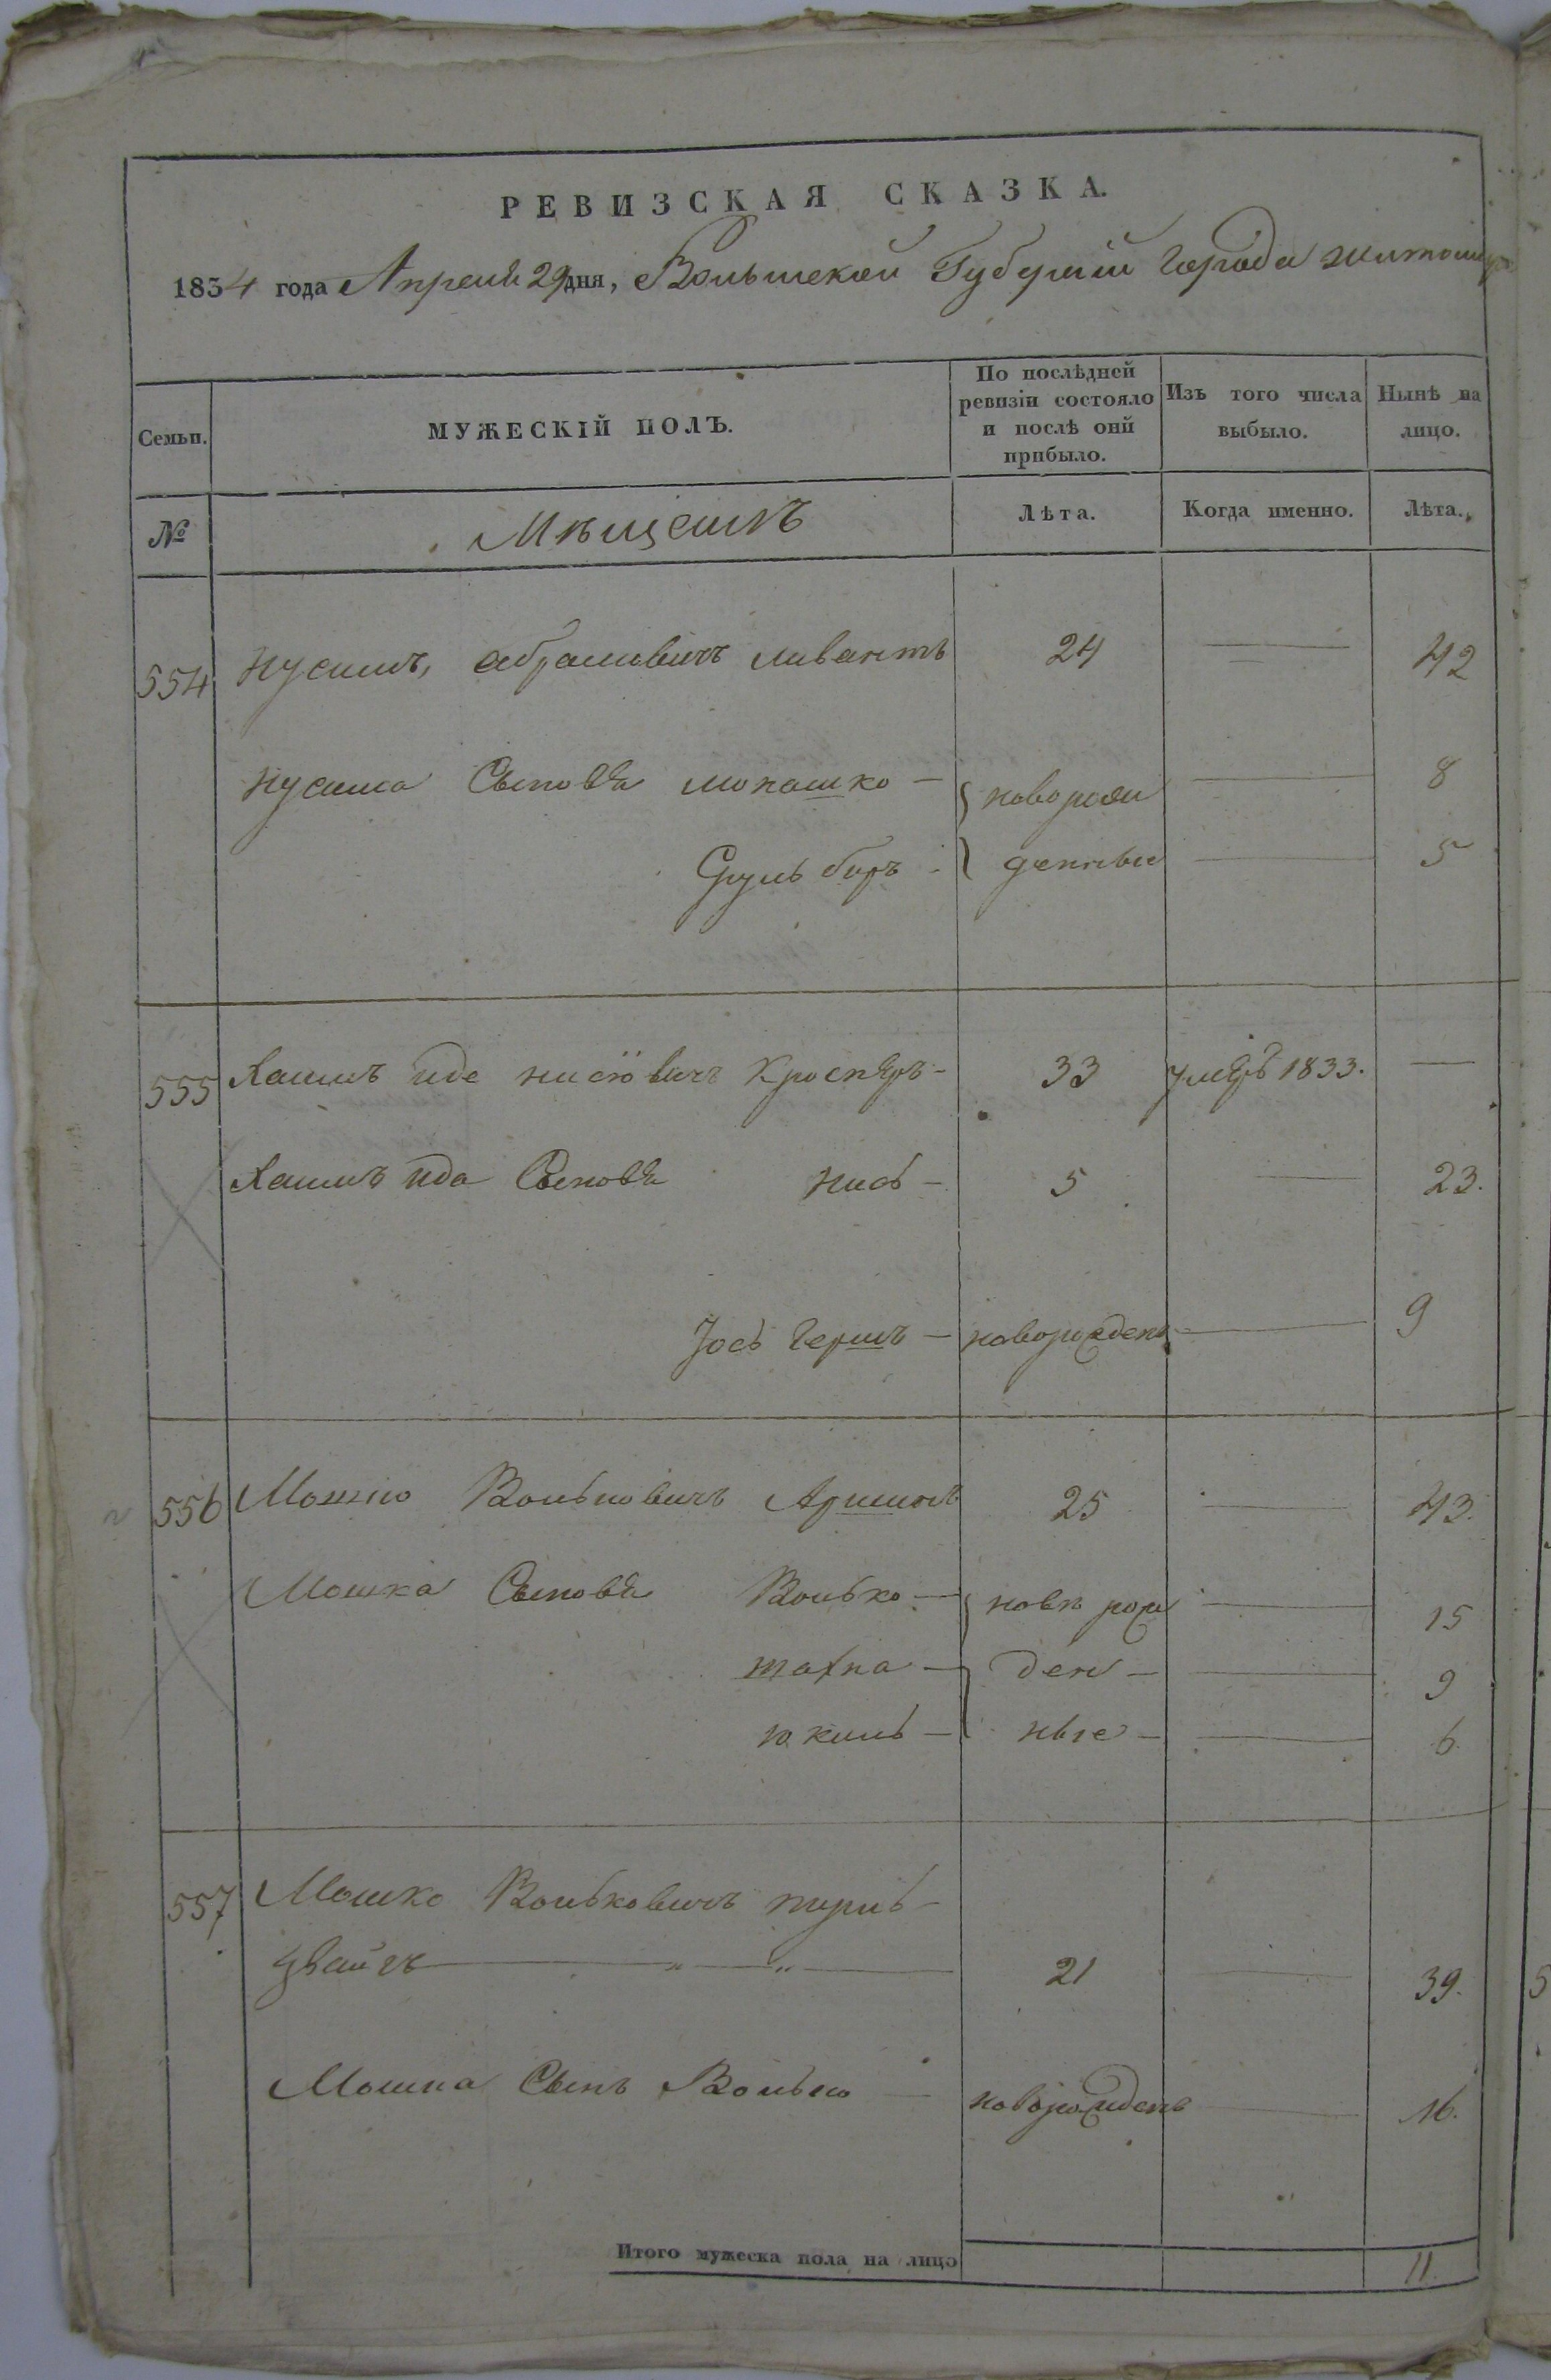 РЕВИЗСКАЯ СКАЗКА.
1834 года Апреля 29 дня, Волынской Губернии Города Житомира
Семьи. МУЖЕСКІЙ ПОЛЪ. По послѣдней ревизіи состояло и послѣ оній прибыло. Изъ того числа выбыло. Нынѣ на лицо.
№ Мѣщанъ Лѣта. Когда именно. Лѣта.
554 Нусимъ, абрамовичъ ливантъ 24 — 42
Нусима Сыновья монашко — новорож — 8
Сруль беръ денные — 5
555 Хаимъ иде нисіовичъ — 33 умеръ 1833. —
Хаимъ ида Сыновья Нись — 5 — 23.
Іось Гершъ — новорожденъ — 9
556 Мошко Вольковичъ Аршинъ 25 — 43.
Мошка Сыновья Волько —ново рож — 15
ден — — 9
юкиль — ные — — 6.
557 Мошко Вольковичъ
цвайгъ — " — " — 21 — 39.
Мошка Сынъ Волько — новорожденъ — 16.
Итого мужеска пола на лицо 11.